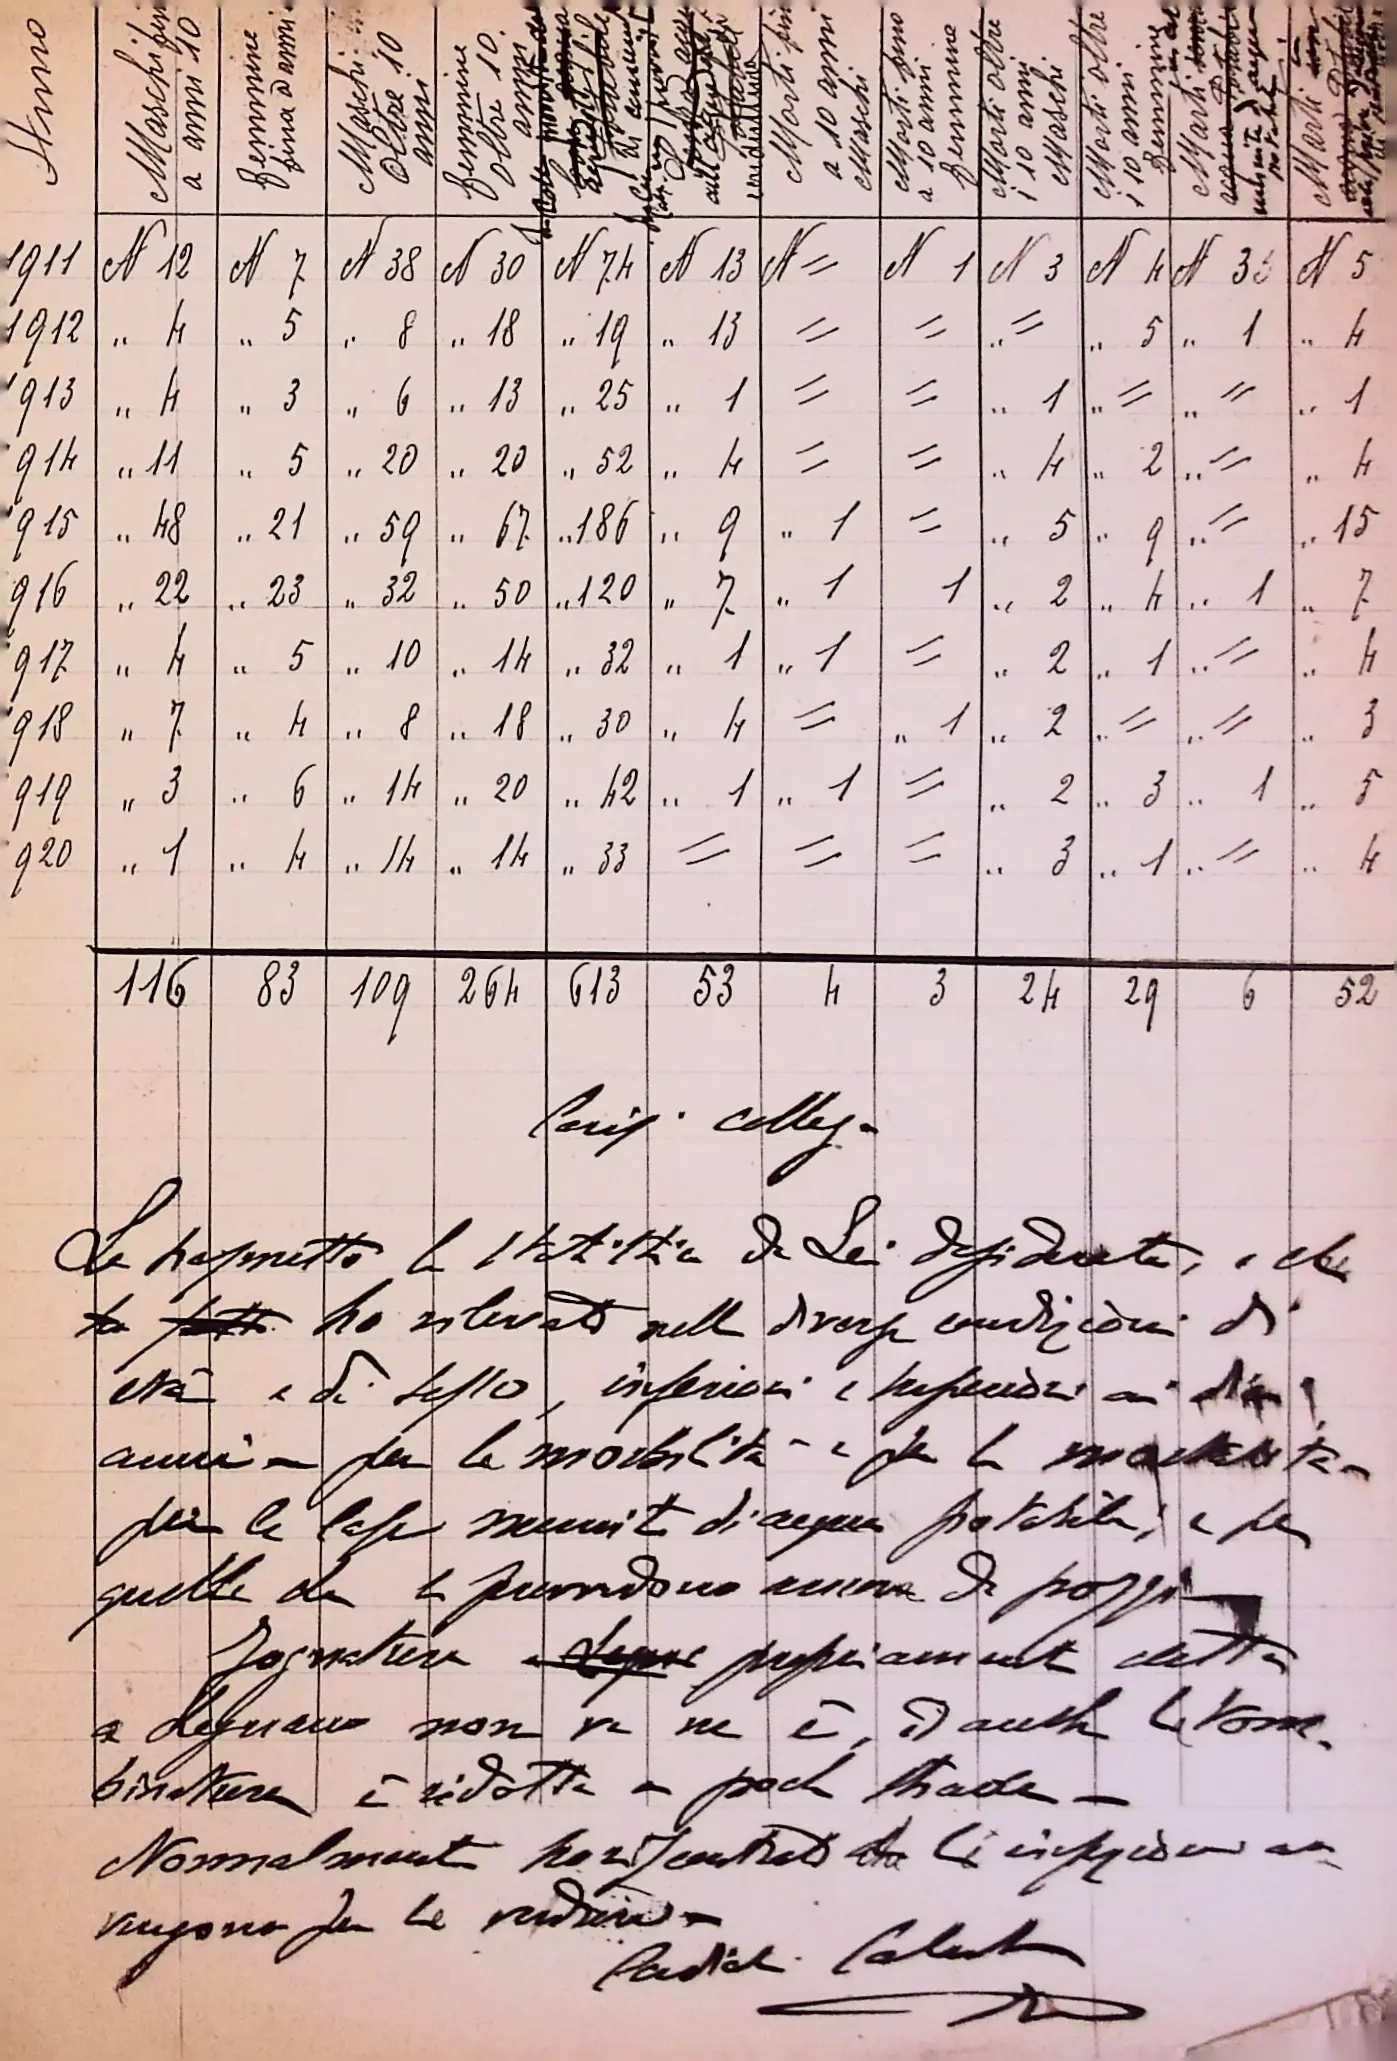 Anno | Maschi fin a anni 10 | Femmine fina a anni | Maschi Oltre 10 anni | Femmine oltre 10 anni | Morti fin a 10 anni Maschi | Morti fino a 10 anni Femmine | Morti oltre i 10 anni Maschi | Morti oltre i 10 anni Femmine | Morti | Morti
1911 N 12 N 7 N 38 N 30 N 74 N 13 N = N 1 N 3 N 4 N N 5
1912 „ 4 „ 5 „ 8 „ 18 „ 19 „ 13 = = „ = „ 5 „ 1 „ 4
913 „ 4 „ 3 „ 6 „ 13 „ 25 „ 1 = = „ 1 „ = „ = „ 1
914 „ 11 „ 5 „ 20 „ 20 „ 52 „ 4 = = „ 4 „ 2 „ = „ 4
915 „ 48 „ 21 „ 59 „ 67 „ 186 „ 9 „ 1 = „ 5 „ 9 „ = „ 15
916 „ 22 „ 23 „ 32 „ 50 „ 120 „ 7 „ 1 1 „ 2 „ 4 „ 1 „ 7
917 „ 4 „ 5 „ 10 „ 14 „ 32 „ 1 „ 1 = „ 2 „ 1 „ = „ 4
918 „ 7 „ 4 „ 8 „ 18 „ 30 „ 4 = „ 1 „ 2 „ = „ = „ 3
919 „ 3 „ 6 „ 14 „ 20 „ 42 „ 1 „ 1 = „ 2 „ 3 „ 1 „ 5
920 „ 1 „ 4 „ 14 „ 14 „ 33 = = = „ 3 „ 1 „ = „ 4
116 83 109 264 613 53 4 3 24 29 6 52
Collega
Le trasmetto la statistica da Lei desiderata, e che
ho rilevato nelle diverse condizioni di
età e di sesso, inferiori e superiori ai dieci
anni - per la morbilità - e per la mortalità -
per le case munite di acqua potabile, e per
quelle che si provvedono ancora da pozzi -
Fognatura propriamente detta
a Legnano non ve ne è, ed anche la tom-
binatura è ridotta a poche strade -
Normalmente ho riscontrato che le infezioni av-
vengono per le verdure -